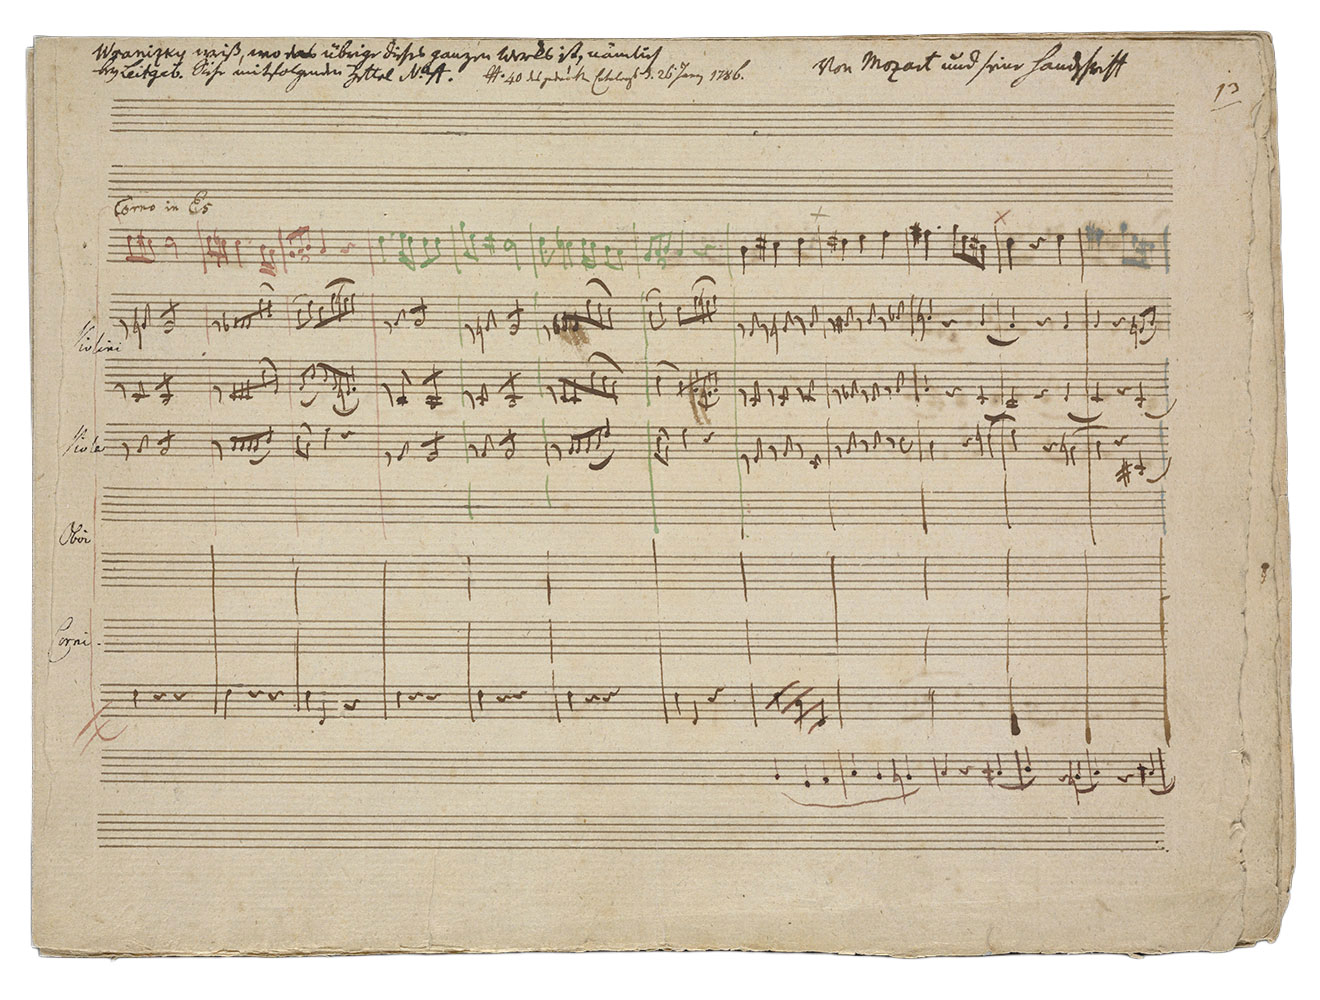 Wranizky weiß, wo das übrige dieses ganzen Werks ist, nämlich
bey Leitgeb. Siehe mitfolgenden Zettel N. A. No 40 des gedruckten 26 Juny 1786.
Von Mozart und seine Handschrift
13
Corno in Es
Violini
Viole
Oboi
Corni